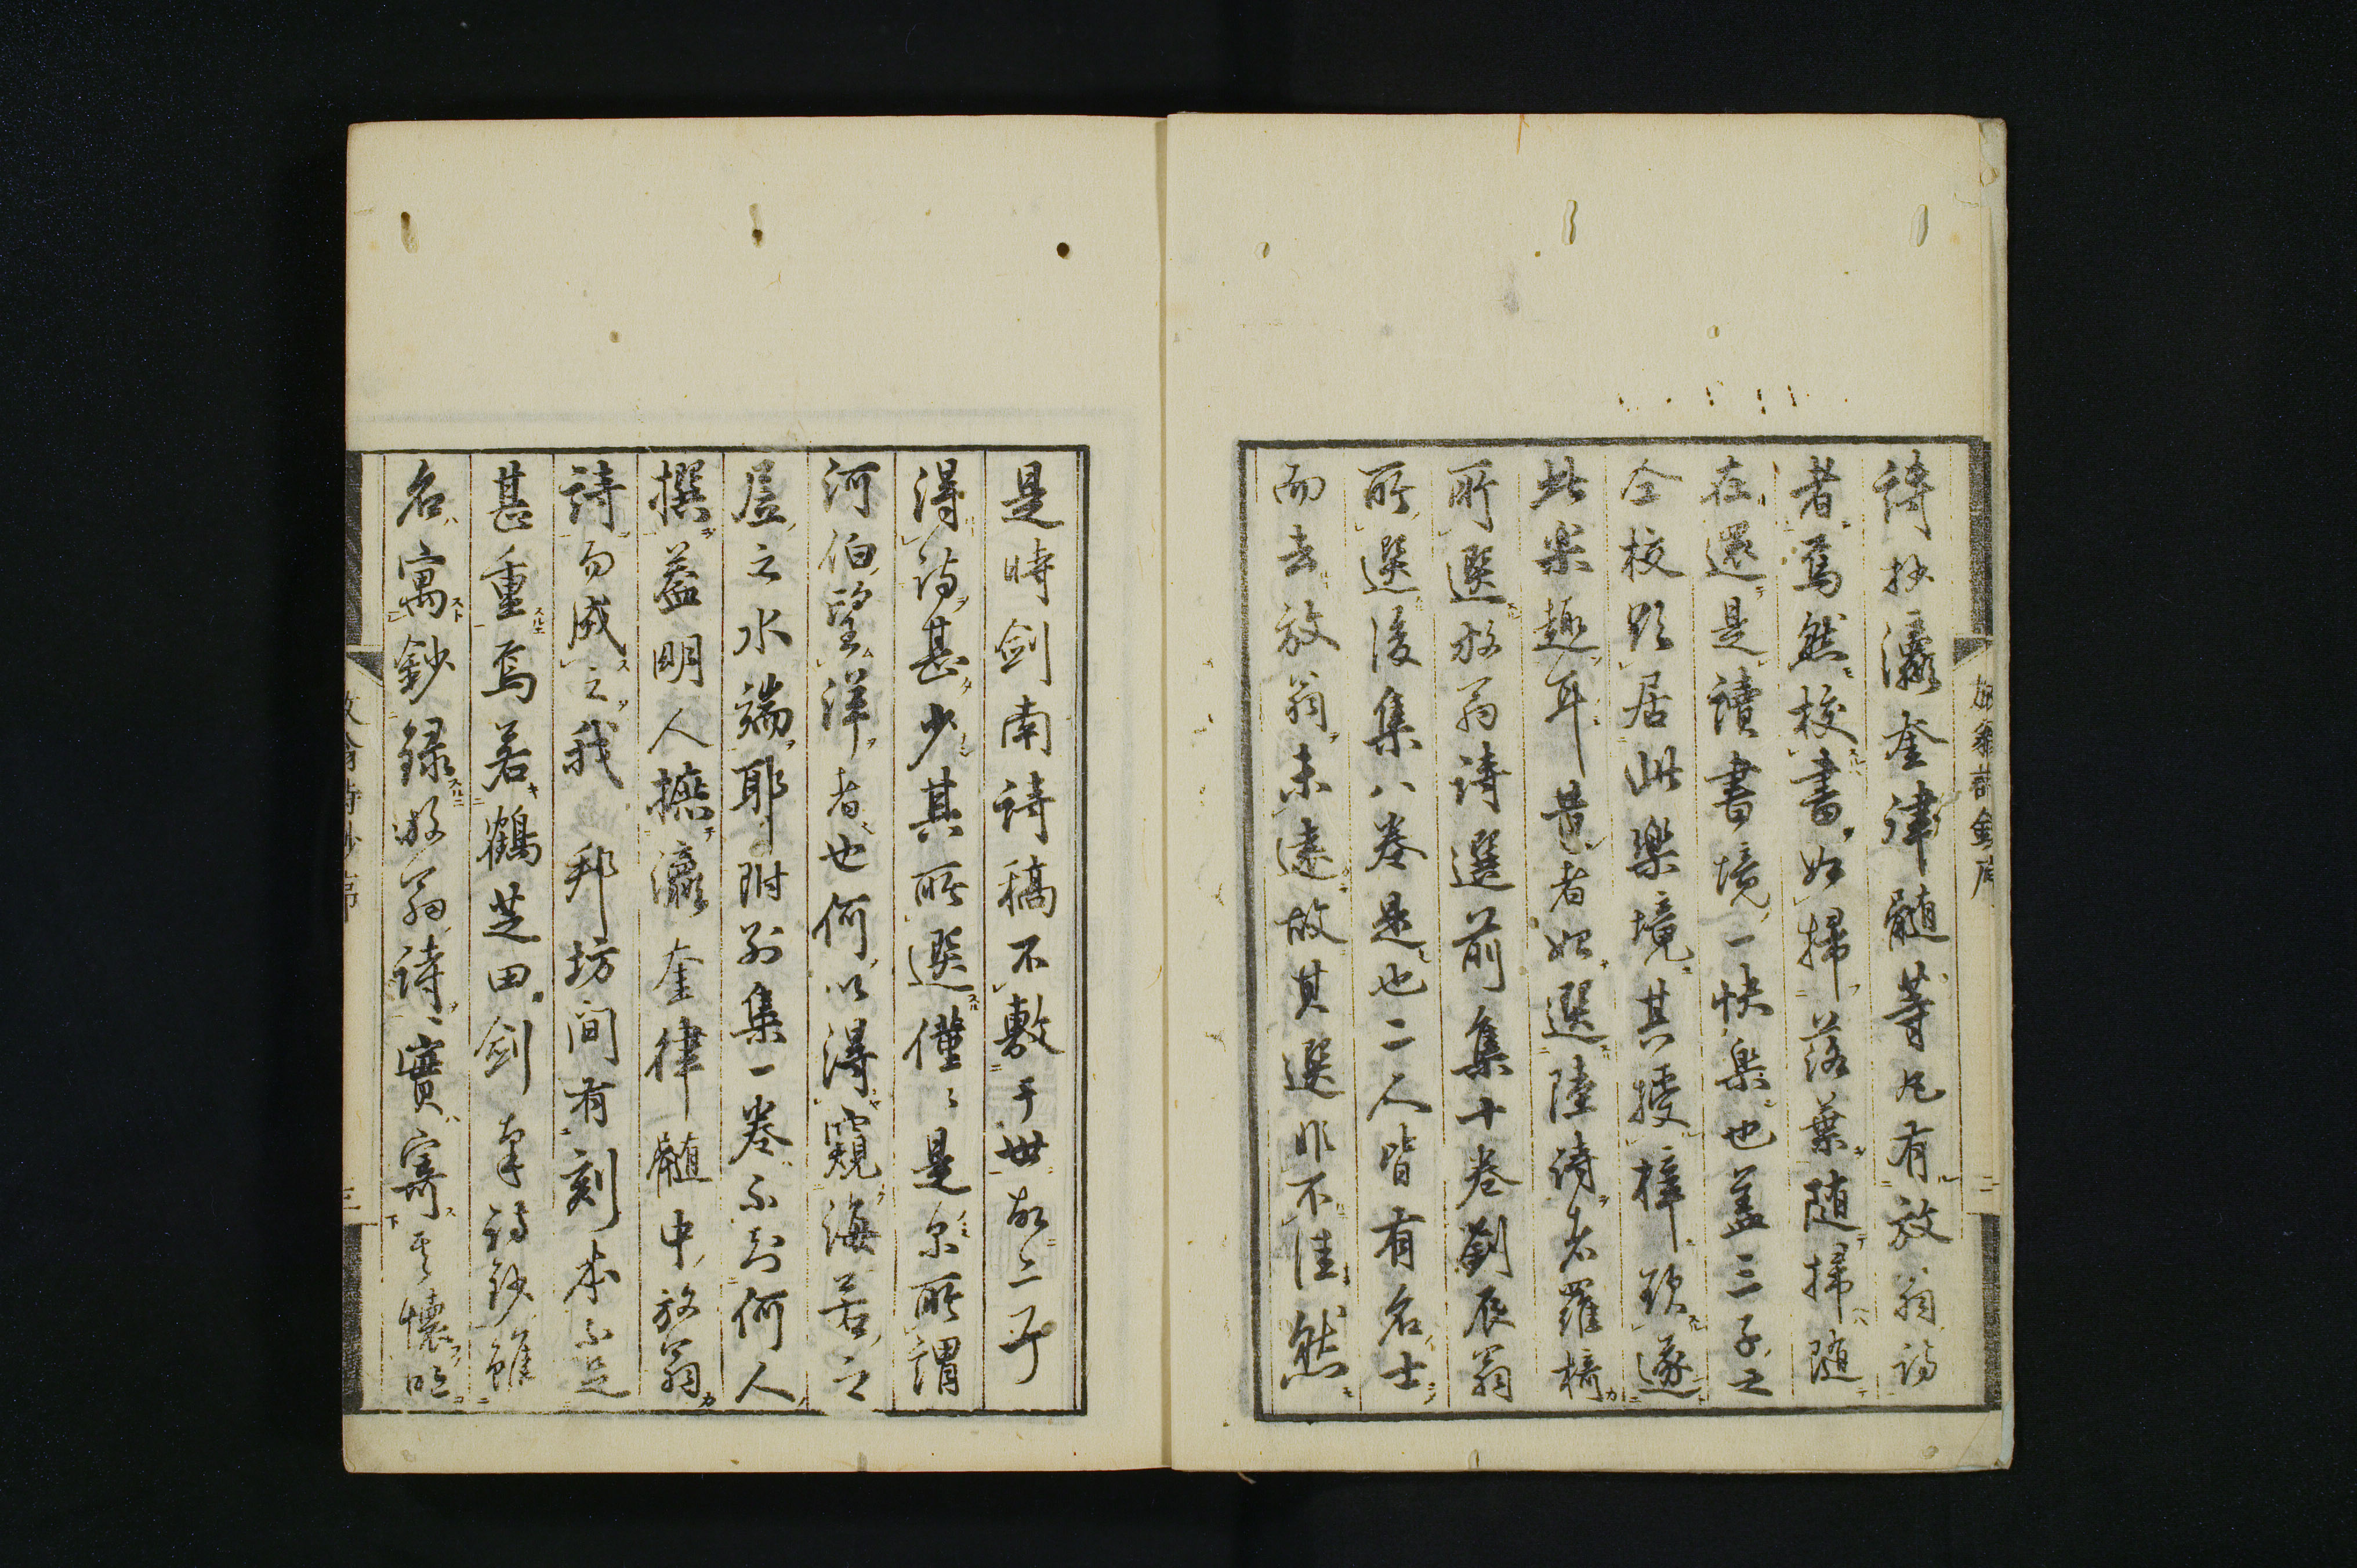 詩抄瀛奎律髓等凡有放翁詩
者焉然校書如掃落葉随掃随
在還是讀書境一快樂也蓋三子之
仝校此居此樂境其授梓欲遂
此樂趣耳昔者如選陸詩者羅椅
所選放翁詩選前集十卷劉辰翁
所選後集八卷是也二人皆有名士
而去放翁未遠故其選非不佳然
是時劍南詩稿不敷于世故二子
得詩甚少其所選僅〻是尔所謂
河伯望洋者也何以得窺海若之
居之水端耶附別集一卷不知何人
撰蓋明人摭瀛奎律髓中放翁
詩而成之我 邦坊間有刻本不足
甚重焉若鶴芝田劍南詩鈔雖
名寓鈔録放翁詩實寄其懷
放翁詩鈔序
二
三